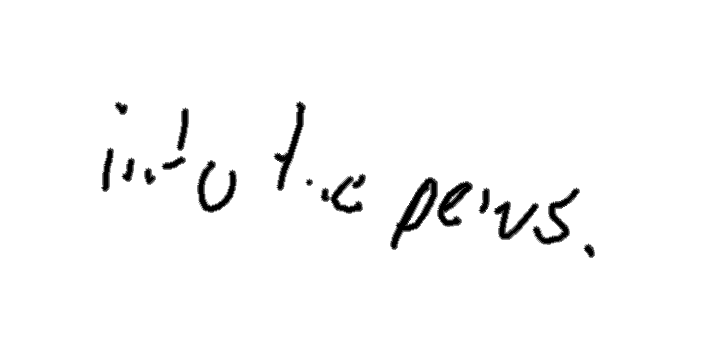 into the pews.